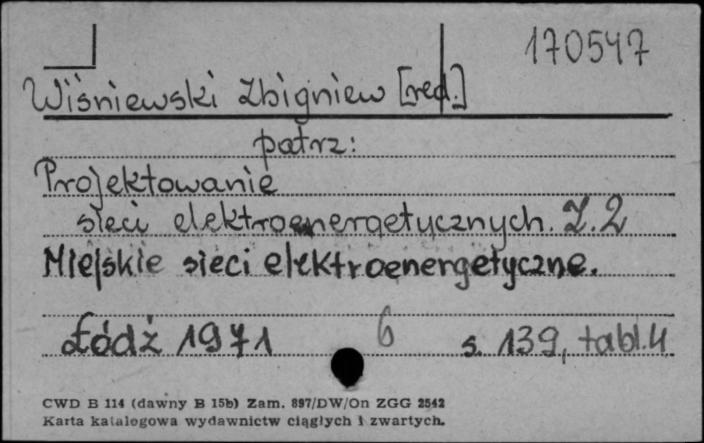 170547
Wiśniewski Zbigniew [red.]
patrz:
Projektowanie
sieci elektroenergetycznych. Z.2
Miejskie sieci elektroenergetyczne.
Łódź 1971 6 s. 139, tabl.4
CWD B 114 (dawny B 15b) Zam. 897/DW/On ZGG 2542
Karta katalogowa wydawnictw ciągłych i zwartych.